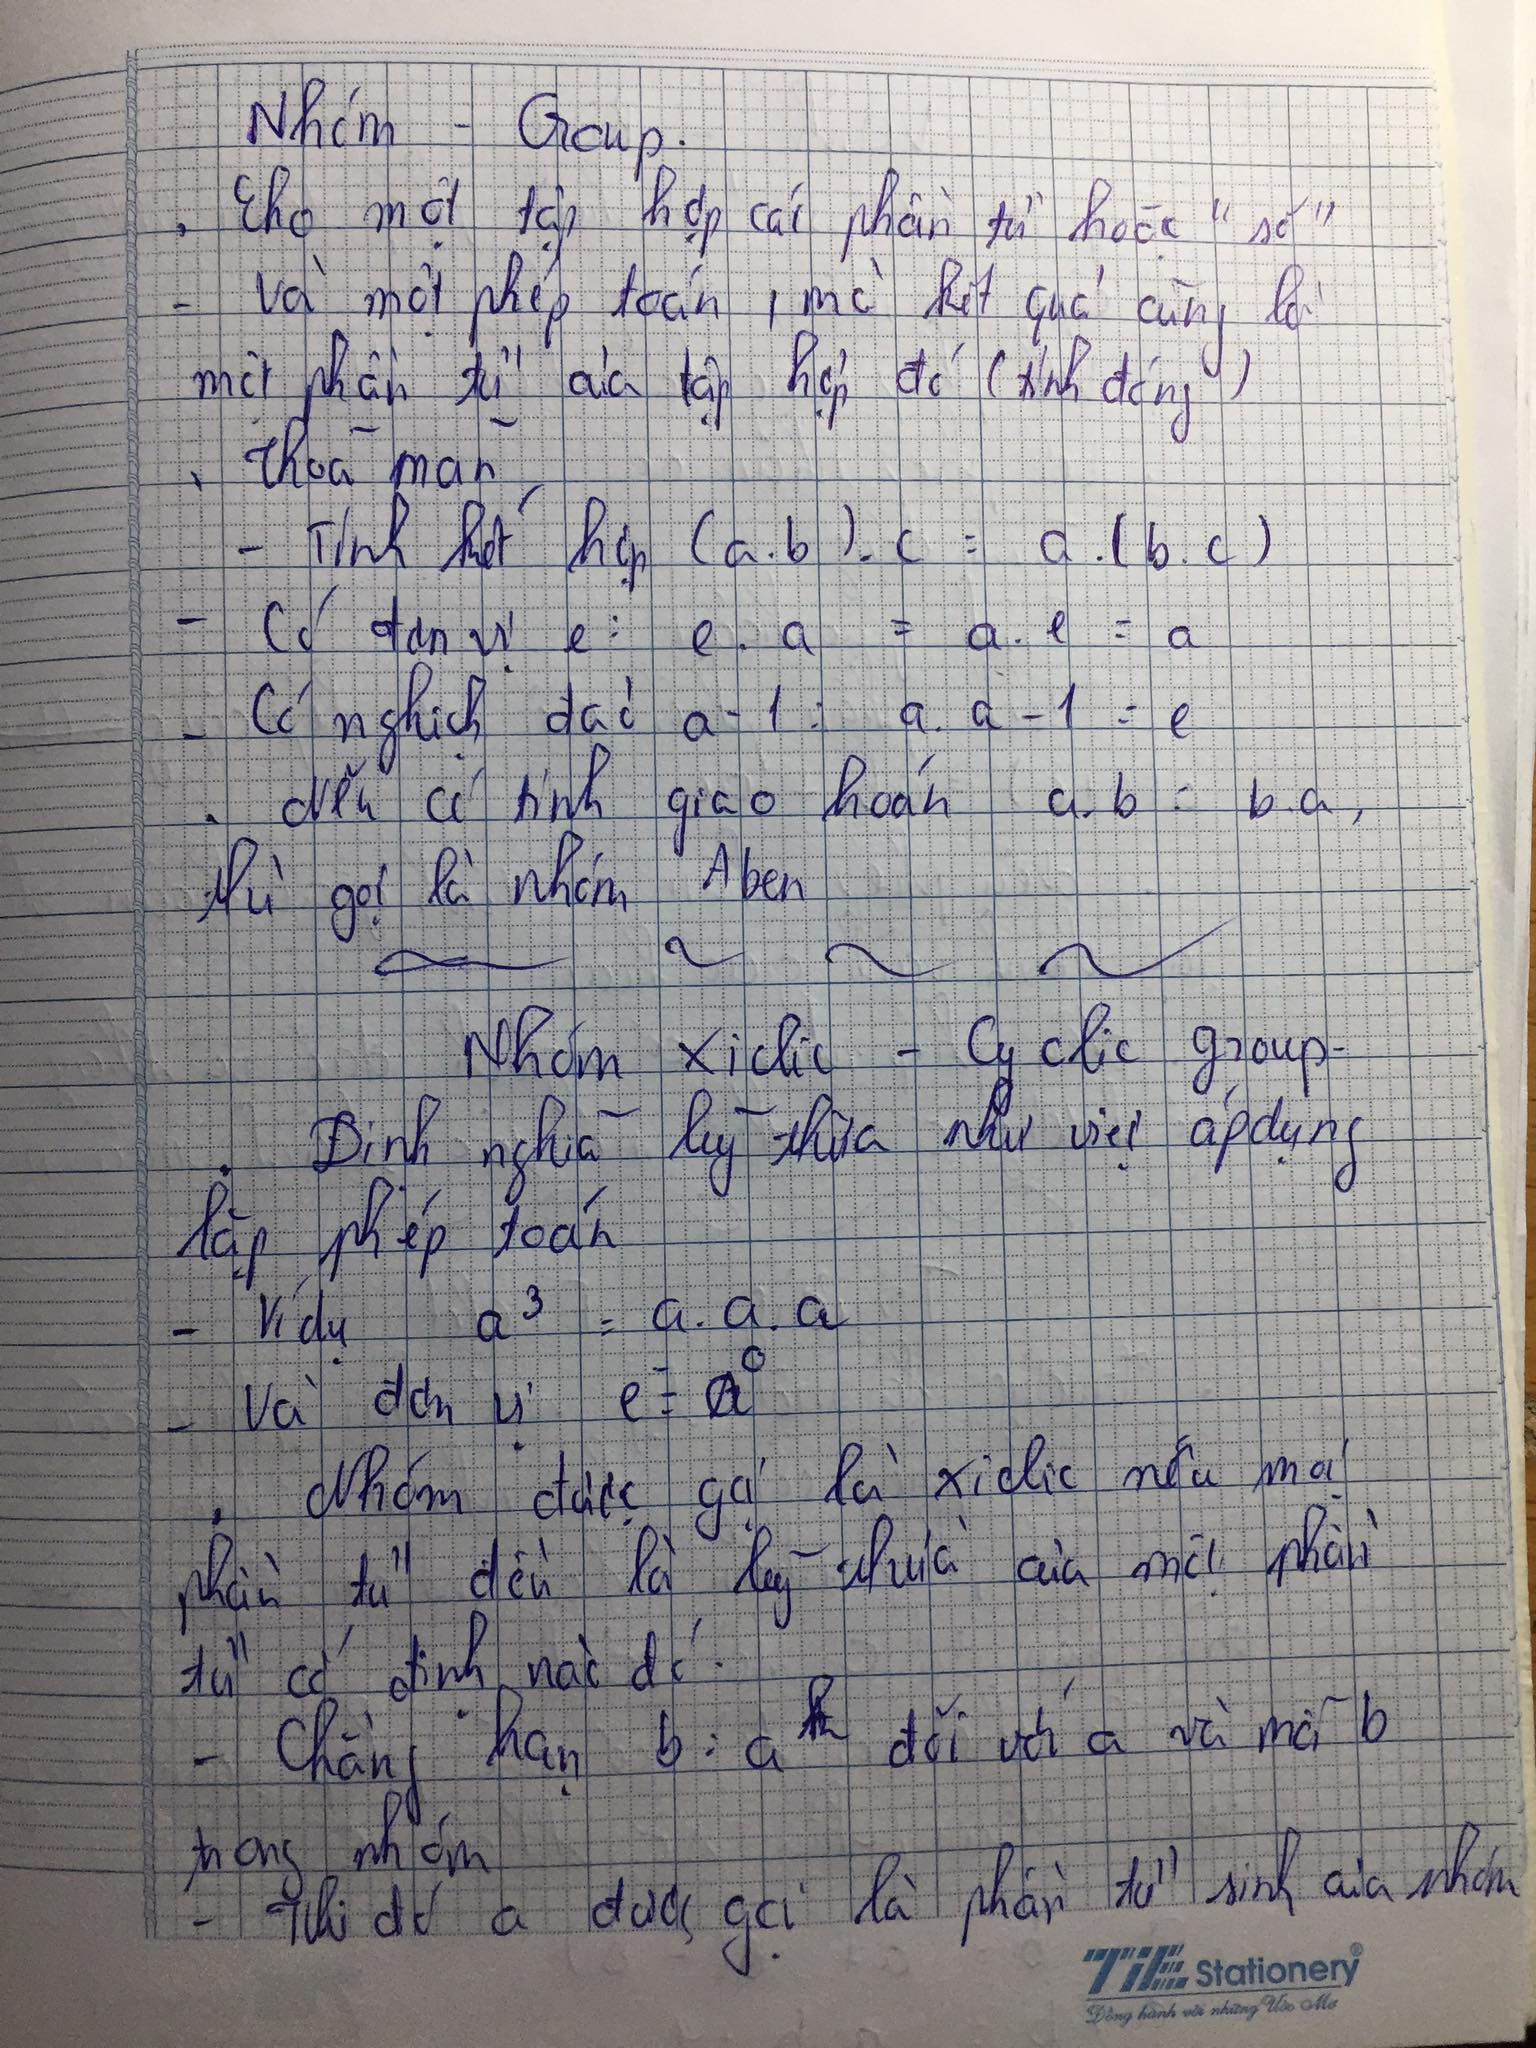 Nhóm - Group.
. Cho một tập hợp các phần tử hoặc "số"
- Và một phép toán, mà kết quả cũng là
một phần tử của tập hợp đó (tính đóng)
. Thoã mãn
- Tính kết hợp (a.b).c = a.(b.c)
- Có đơn vị e: e.a = a.e = a
- Có nghịch đảo a-1: a.a-1 = e
. Nếu có tính giao hoán a.b = b.a,
thì gọi là nhóm Aben
Nhóm xiclic - Cyclic group-
. Định nghĩa luỹ thừa như việc áp dụng
lặp phép toán
- Ví dụ a³ = a.a.a
- Và đơn vị e = a⁰
. Nhóm được gọi là xiclic nếu mọi
phần tử đều là luỹ thừa của một phần
tử cố định nào đó.
- Chẳng hạn b = aᵏ đối với a và mỗi b
trong nhóm
- Khi đó a được gọi là phần tử sinh của nhóm
TiE Stationery®
Đồng hành với những Ước Mơ